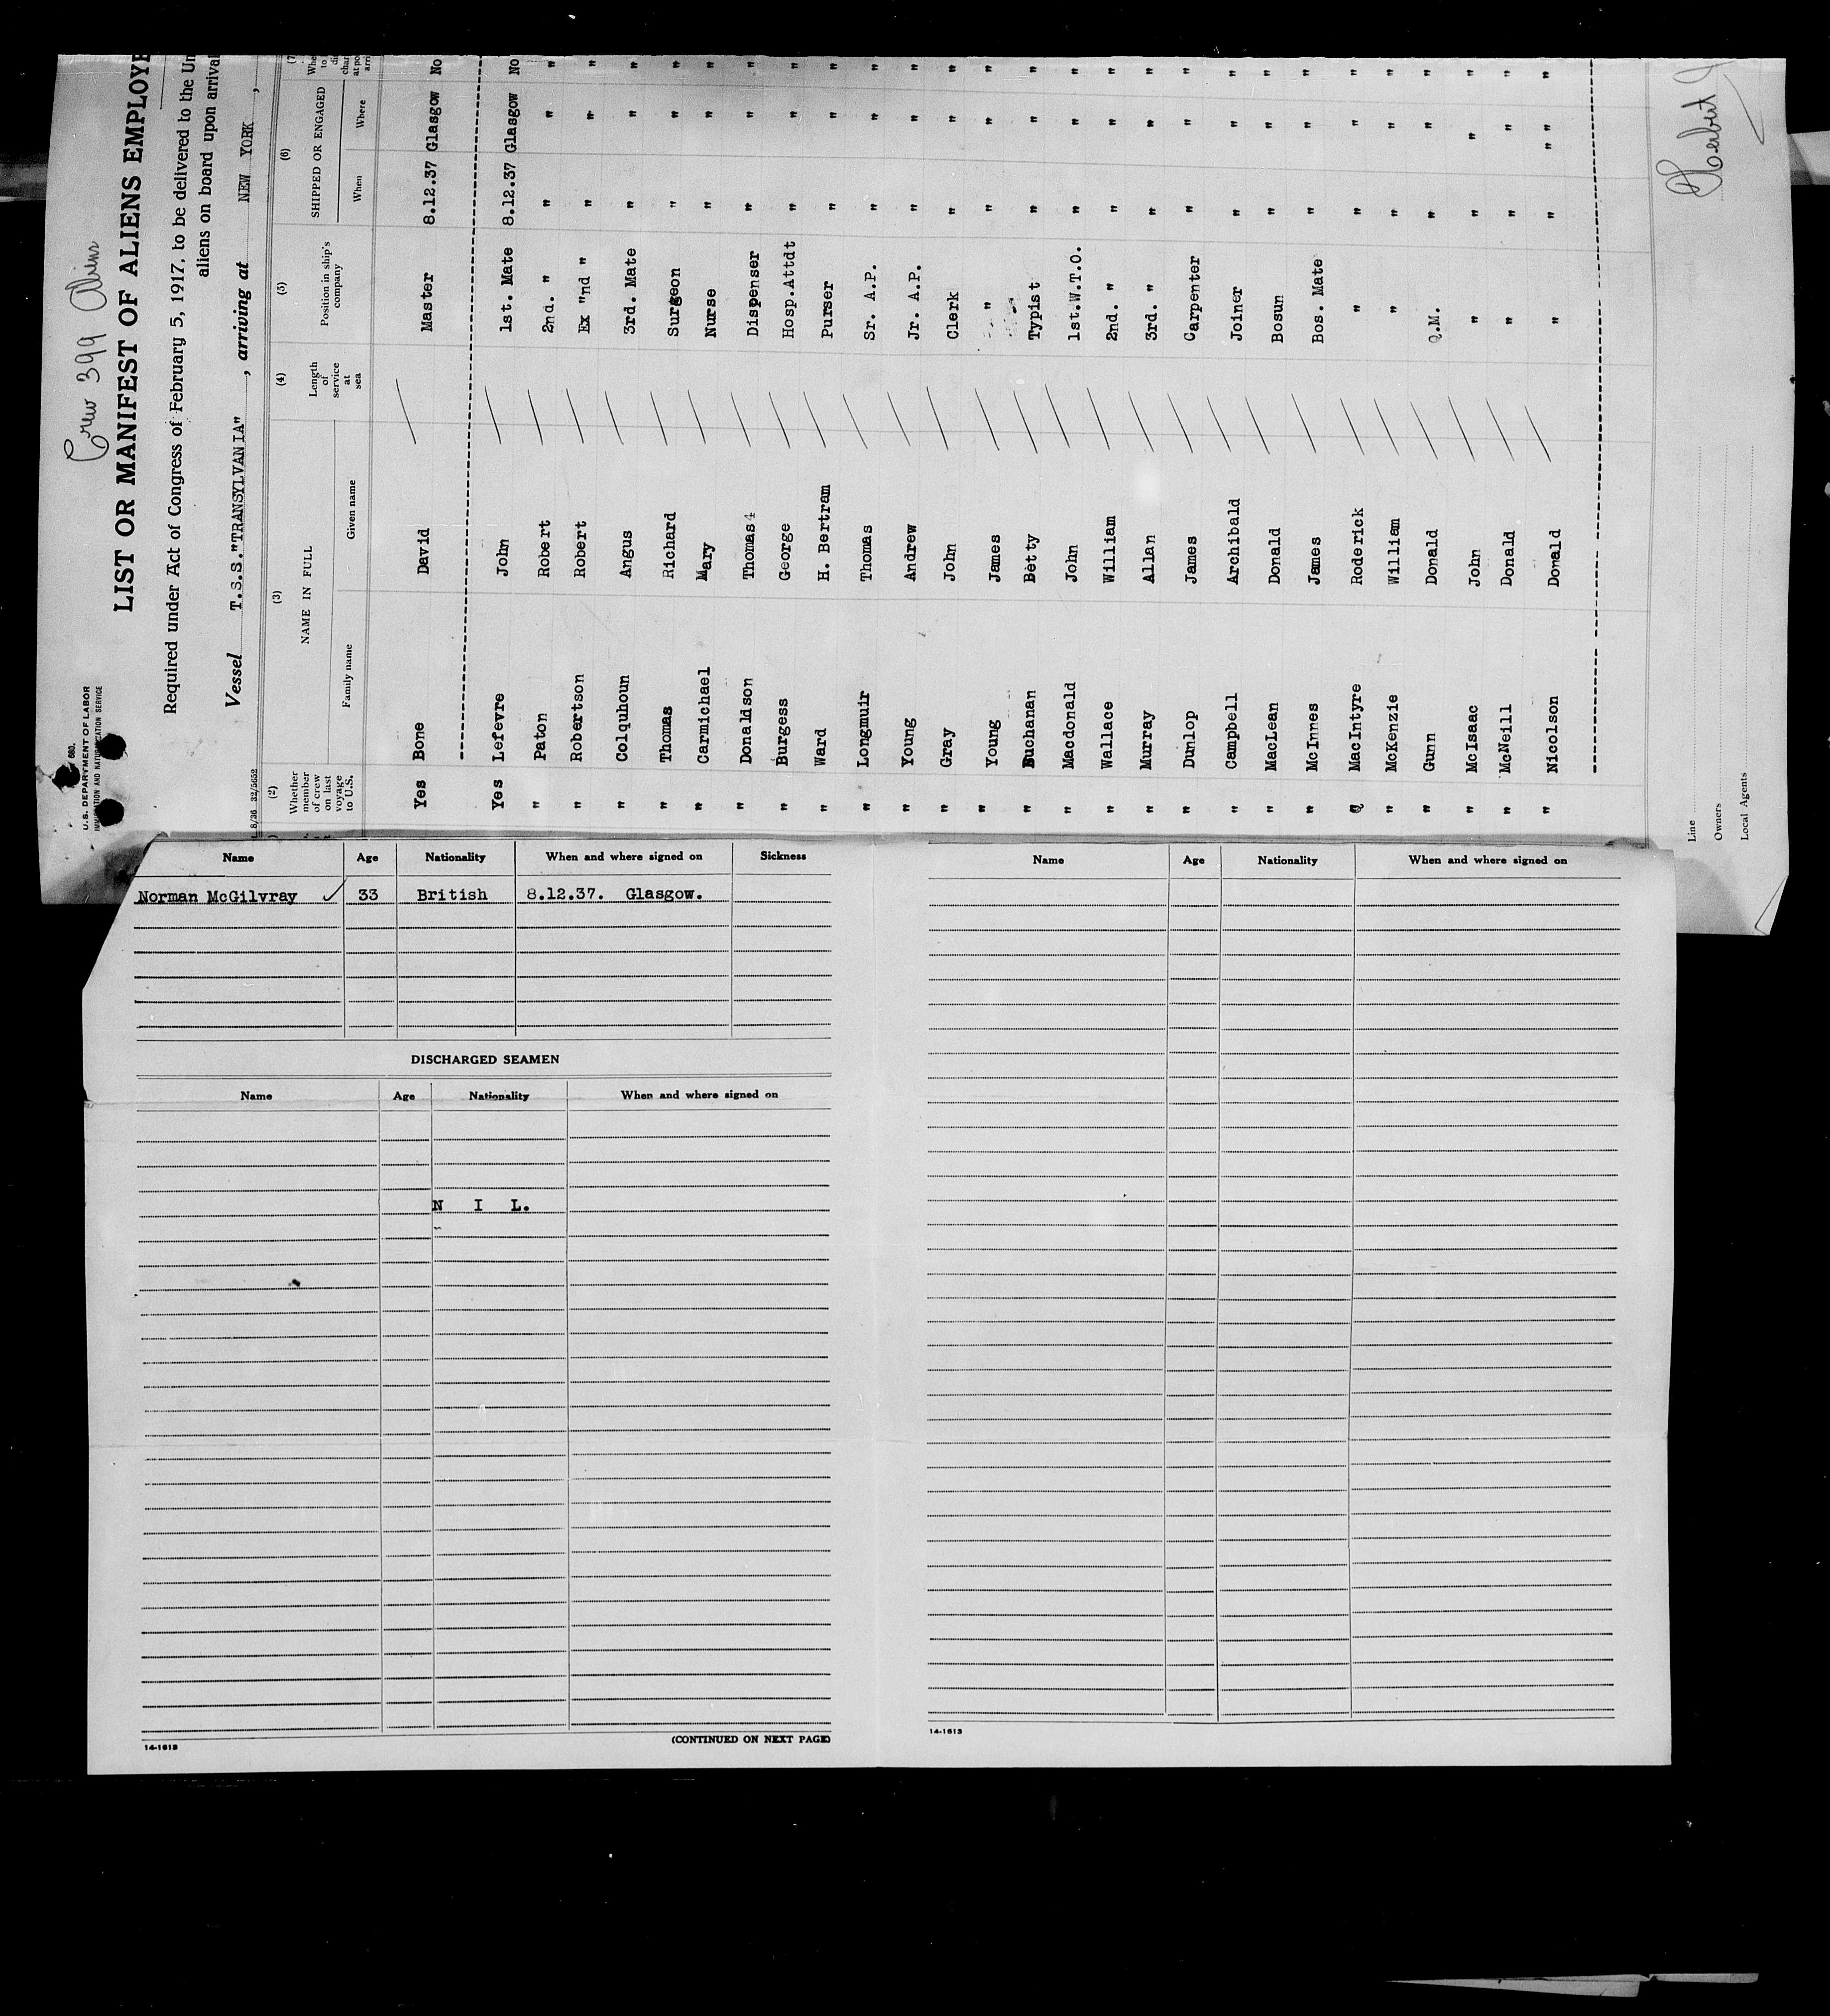 Crew 399 Aliens
680.
U.S. DEPARTMENT OF LABOR
IMMIGRATION AND NATURALIZATION SERVICE
LIST OR MANIFEST OF ALIENS EMPLOYE
Required under Act of Congress of February 5, 1917, to be delivered to the Un
aliens on board upon arrival
Vessel T.S.S."TRANSYLVANIA" , arriving at NEW YORK ,
8/36 32/5652
(2) (3) (4) (5) (6) (7
Whether member of crew on last voyage to U.S. NAME IN FULL Length of service at sea Position in ship's company SHIPPED OR ENGAGED
Family name Given name When Where
Yes Bone David Master 8.12.37 Glasgow No
Yes Lefevre John 1st. Mate 8.12.37 Glasgow No
" Paton Robert 2nd. " " " "
" Robertson Robert Ex "nd " " " "
" Colquhoun Angus 3rd. Mate " " "
" Thomas Richard Surgeon " " "
" Carmichael Mary Nurse " " "
" Donaldson Thomas Dispenser " " "
" Burgess George Hosp.Attdt " " "
" Ward H. Bertram Purser " " "
" Longmuir Thomas Sr. A.P. " " "
" Young Andrew Jr. A.P. " " "
" Gray John Clerk " " "
" Young James " " " "
" Buchanan Betty Typist " " "
" Macdonald John 1st.W.T.O. " " "
" Wallace William 2nd. " " " "
" Murray Allan 3rd. " " " "
" Dunlop James Carpenter " " "
" Campbell Archibald Joiner " " "
" MacLean Donald Bosun " " "
" McInnes James Bos. Mate " " "
" MacIntyre Roderick " " " "
" McKenzie William " " " "
" Gunn Donald Q.M. " " "
" McIsaac John " " " "
" McNeill Donald " " " "
" Nicolson Donald " " " " "
Line
Owners
Local Agents
Herbert
Name Age Nationality When and where signed on Sickness
Norman McGilvray 33 British 8.12.37. Glasgow.
DISCHARGED SEAMEN
Name Age Nationality When and where signed on
N I L.
14-1613
(CONTINUED ON NEXT PAGE)
Name Age Nationality When and where signed on
14-1613